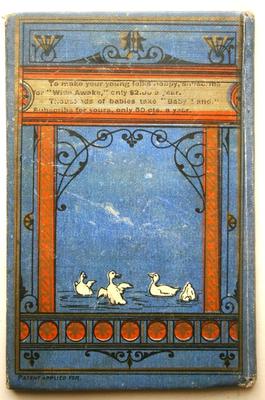 To make your young folks happy, subscribe
for "Wide Awake," only $2.00 a year.
Thousands of babies take "Baby Land."
Subscribe for yours, only 50 cts. a year.
PATENT APPLIED FOR.